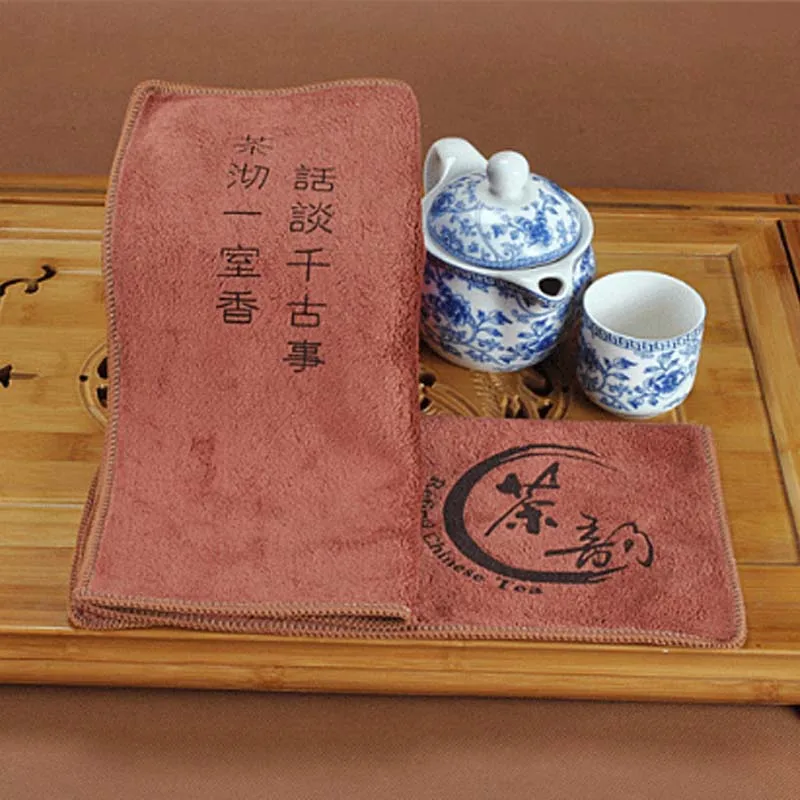 話談千古事
茶沏一室香
茶韵
Chinese Tea